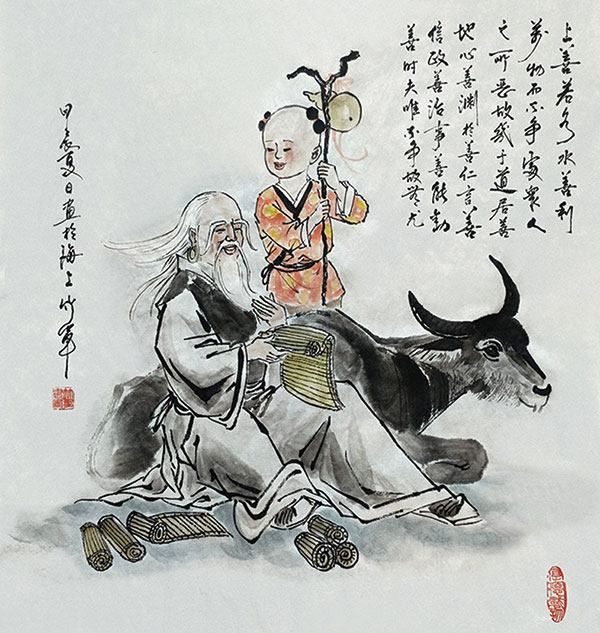 上善若水水善利
萬物而不争處衆人
之所惡故幾于道居善
地心善渊於善仁言善
信政善治事善能動
善时夫唯不争故无尤
甲辰夏日畫於海上